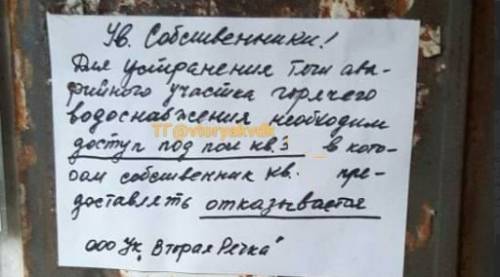 Ув. Собственники!
Для устранения течи ава-
рийного участка горячего
водоснабжения необходим
TГ@vtoryakvdk
доступ под пол кв. 3 в кото-
ром собственник кв. пре-
доставлять отказывается
ООО УК "Вторая Речка"